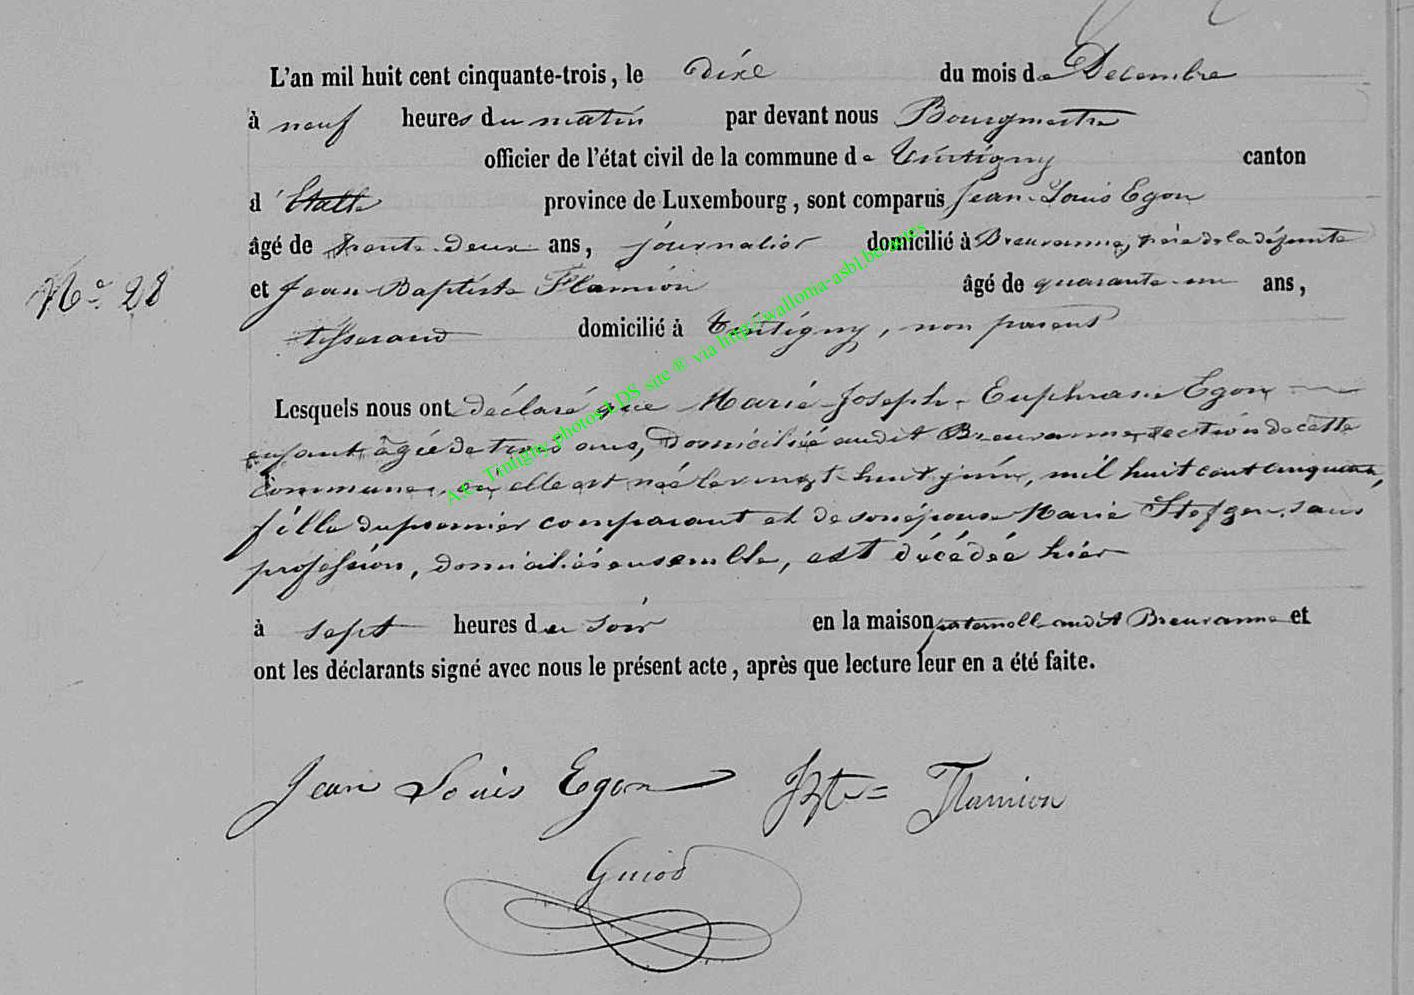 L'an mil huit cent cinquante-trois, le dixe du mois de Décembre
à neuf heures du matin par devant nous Bourgmestre
officier de l'état civil de la commune de Tintigny canton
d'Etalle province de Luxembourg, sont comparus Jean-Louis Egon
âgé de trente-deux ans, journalier domicilié à Breuvanne, père de la défunte
N° 28
et Jean-Baptiste Flamion âgé de quarante-un ans,
tisserand domicilié à Tintigny, non parent
Lesquels nous ont déclaré que Marie-Joseph-Euphrasie Egon
enfant âgée de trois ans, domiciliée audit Breuvanne, section de cette
commune, où elle est née le vingt-huit juin, mil huit cent cinquante,
fille du premier comparant et de son épouse Marie Stefgen, sans
profession, domiciliés ensemble, est décédée hier
à sept heures du soir en la maison paternelle audit Breuvanne et
ont les déclarants signé avec nous le présent acte, après que lecture leur en a été faite.
A.E. Tintigny photos LDS site ® via http://wallonia-asbl.be/actes
Jean Louis Egon JBte = Flamion
Guiod